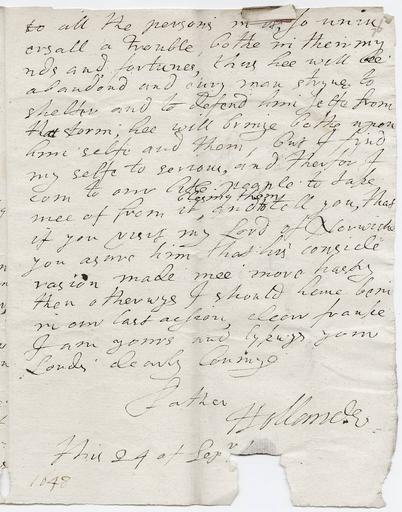 to all the persons in it, so univ
ersall a trouble bothe in their my
nds and fortunes, thus hee will be
abandond and every man stryve to
shelter and to defend him selfe from
that storm, hee will bringe bothe upon
him selfe and them, but I find
my selfe to serious, and therfor I
com to our people to take
mee of from it, and tell you, that
if you visit my Lord of Norwiche
you asure him that his conside
ration made mee more
then otherwys I should have bein
in our last action, deer franke
I am yours and your
Lords dearly lovinge
Father
Hollande
this 24 of Sepr
1648